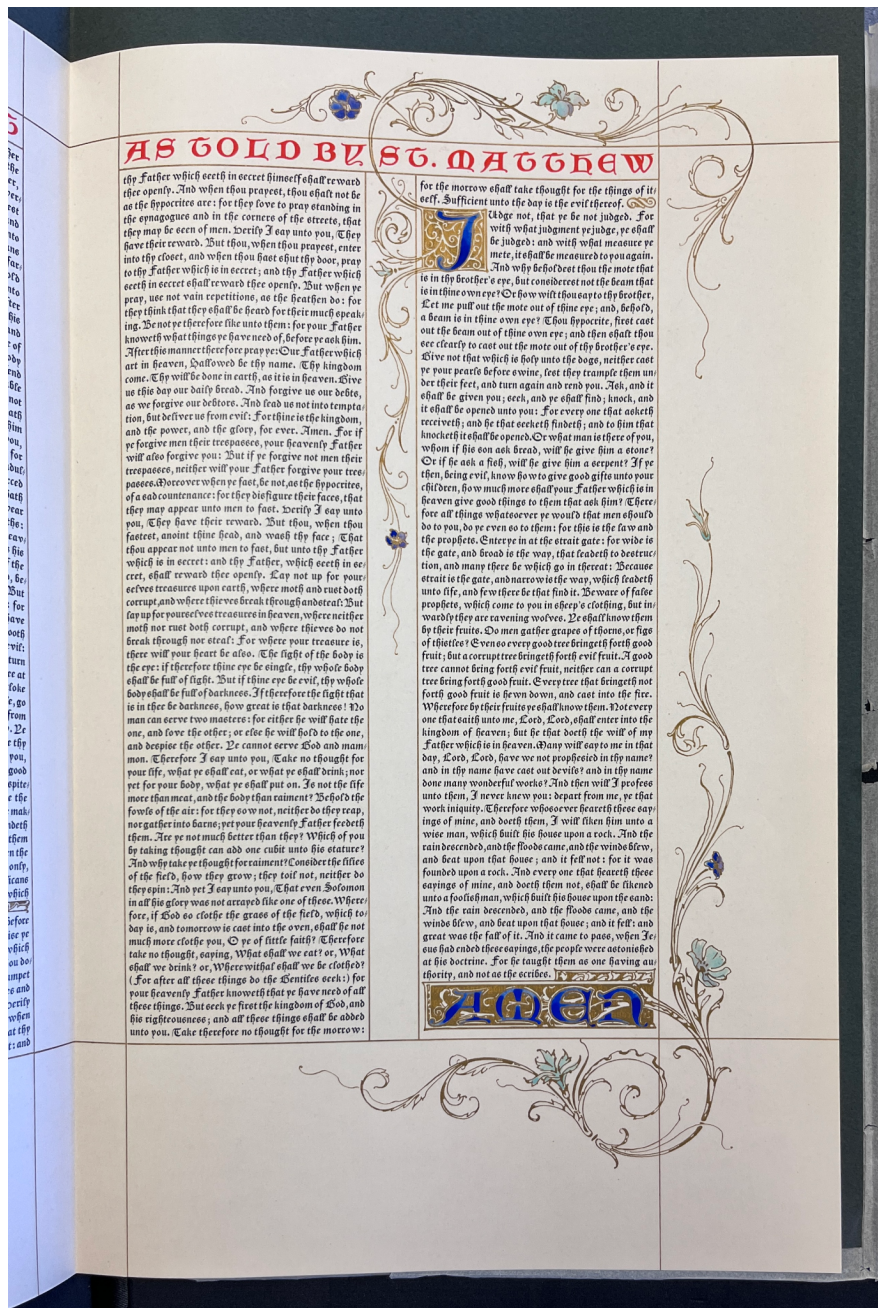 AS TOLD BY ST. MATTHEW
thy Father which seeth in secret himself shall reward
thee openly. And when thou prayest, thou shalt not be
as the hypocrites are: for they love to pray standing in
the synagogues and in the corners of the streets, that
they may be seen of men. Verily I say unto you, They
have their reward. But thou, when thou prayest, enter
into thy closet, and when thou hast shut thy door, pray
to thy Father which is in secret; and thy Father which
seeth in secret shall reward thee openly. But when ye
pray, use not vain repetitions, as the heathen do: for
they think that they shall be heard for their much speak/
ing. Be not ye therefore like unto them: for your Father
knoweth what things ye have need of, before ye ask him.
After this manner therefore pray ye: Our Father which
art in heaven, Hallowed be thy name. Thy kingdom
come. Thy will be done in earth, as it is in heaven. Give
us this day our daily bread. And forgive us our debts,
as we forgive our debtors. And lead us not into tempta/
tion, but deliver us from evil: For thine is the kingdom,
and the power, and the glory, for ever. Amen. For if
ye forgive men their trespasses, your heavenly Father
will also forgive you: But if ye forgive not men their
trespasses, neither will your Father forgive your tres/
passes. Moreover when ye fast, be not, as the hypocrites,
of a sad countenance: for they disfigure their faces, that
they may appear unto men to fast. Verily I say unto
you, They have their reward. But thou, when thou
fastest, anoint thine head, and wash thy face; That
thou appear not unto men to fast, but unto thy Father
which is in secret: and thy Father, which seeth in se/
cret, shall reward thee openly. Lay not up for your/
selves treasures upon earth, where moth and rust doth
corrupt, and where thieves break through and steal: But
lay up for yourselves treasures in heaven, where neither
moth nor rust doth corrupt, and where thieves do not
break through nor steal: For where your treasure is,
there will your heart be also. The light of the body is
the eye: if therefore thine eye be single, thy whole body
shall be full of light. But if thine eye be evil, thy whole
body shall be full of darkness. If therefore the light that
is in thee be darkness, how great is that darkness! No
man can serve two masters: for either he will hate the
one, and love the other; or else he will hold to the one,
and despise the other. Ye cannot serve God and mam/
mon. Therefore I say unto you, Take no thought for
your life, what ye shall eat, or what ye shall drink; nor
yet for your body, what ye shall put on. Is not the life
more than meat, and the body than raiment? Behold the
fowls of the air: for they sow not, neither do they reap,
nor gather into barns; yet your heavenly Father feedeth
them. Are ye not much better than they? Which of you
by taking thought can add one cubit unto his stature?
And why take ye thought for raiment? Consider the lilies
of the field, how they grow; they toil not, neither do
they spin: And yet I say unto you, That even Solomon
in all his glory was not arrayed like one of these. Where/
fore, if God so clothe the grass of the field, which to/
day is, and tomorrow is cast into the oven, shall he not
much more clothe you, O ye of little faith? Therefore
take no thought, saying, What shall we eat? or, What
shall we drink? or, Wherewithal shall we be clothed?
(For after all these things do the Gentiles seek:) for
your heavenly Father knoweth that ye have need of all
these things. But seek ye first the kingdom of God, and
his righteousness; and all these things shall be added
unto you. Take therefore no thought for the morrow:
for the morrow shall take thought for the things of it/
self. Sufficient unto the day is the evil thereof.
JUdge not, that ye be not judged. For
with what judgment ye judge, ye shall
be judged: and with what measure ye
mete, it shall be measured to you again.
And why beholdest thou the mote that
is in thy brother's eye, but considerest not the beam that
is in thine own eye? Or how wilt thou say to thy brother,
Let me pull out the mote out of thine eye; and, behold,
a beam is in thine own eye? Thou hypocrite, first cast
out the beam out of thine own eye; and then shalt thou
see clearly to cast out the mote out of thy brother's eye.
Give not that which is holy unto the dogs, neither cast
ye your pearls before swine, lest they trample them un/
der their feet, and turn again and rend you. Ask, and it
shall be given you; seek, and ye shall find; knock, and
it shall be opened unto you: For every one that asketh
receiveth; and he that seeketh findeth; and to him that
knocketh it shall be opened. Or what man is there of you,
whom if his son ask bread, will he give him a stone?
Or if he ask a fish, will he give him a serpent? If ye
then, being evil, know how to give good gifts unto your
children, how much more shall your Father which is in
heaven give good things to them that ask him? There/
fore all things whatsoever ye would that men should
do to you, do ye even so to them: for this is the law and
the prophets. Enter ye in at the strait gate: for wide is
the gate, and broad is the way, that leadeth to destruc/
tion, and many there be which go in thereat: Because
strait is the gate, and narrow is the way, which leadeth
unto life, and few there be that find it. Beware of false
prophets, which come to you in sheep's clothing, but in/
wardly they are ravening wolves. Ye shall know them
by their fruits. Do men gather grapes of thorns, or figs
of thistles? Even so every good tree bringeth forth good
fruit; but a corrupt tree bringeth forth evil fruit. A good
tree cannot bring forth evil fruit, neither can a corrupt
tree bring forth good fruit. Every tree that bringeth not
forth good fruit is hewn down, and cast into the fire.
Wherefore by their fruits ye shall know them. Not every
one that saith unto me, Lord, Lord, shall enter into the
kingdom of heaven; but he that doeth the will of my
Father which is in heaven. Many will say to me in that
day, Lord, Lord, have we not prophesied in thy name?
and in thy name have cast out devils? and in thy name
done many wonderful works? And then will I profess
unto them, I never knew you: depart from me, ye that
work iniquity. Therefore whosoever heareth these say/
ings of mine, and doeth them, I will liken him unto a
wise man, which built his house upon a rock. And the
rain descended, and the floods came, and the winds blew,
and beat upon that house; and it fell not: for it was
founded upon a rock. And every one that heareth these
sayings of mine, and doeth them not, shall be likened
unto a foolish man, which built his house upon the sand:
And the rain descended, and the floods came, and the
winds blew, and beat upon that house; and it fell: and
great was the fall of it. And it came to pass, when Je/
sus had ended these sayings, the people were astonished
at his doctrine. For he taught them as one having au/
thority, and not as the scribes.
AMEN